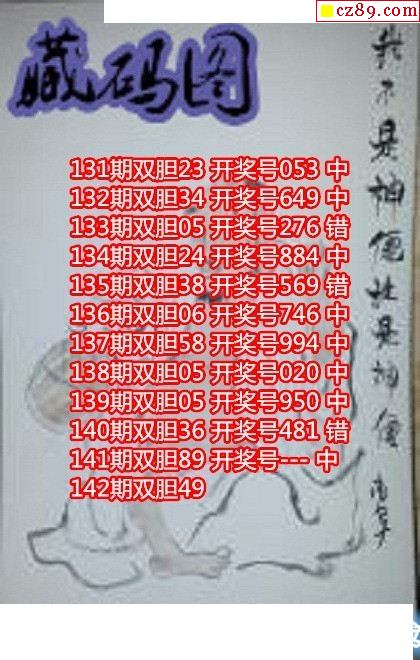 cz89.com
藏码图
131期双胆23 开奖号053 中
132期双胆34 开奖号649 中
133期双胆05 开奖号276 错
134期双胆24 开奖号884 中
135期双胆38 开奖号569 错
136期双胆06 开奖号746 中
137期双胆58 开奖号994 中
138期双胆05 开奖号020 中
139期双胆05 开奖号950 中
140期双胆36 开奖号481 错
141期双胆89 开奖号--- 中
142期双胆49
我不是神仙胜是神仙